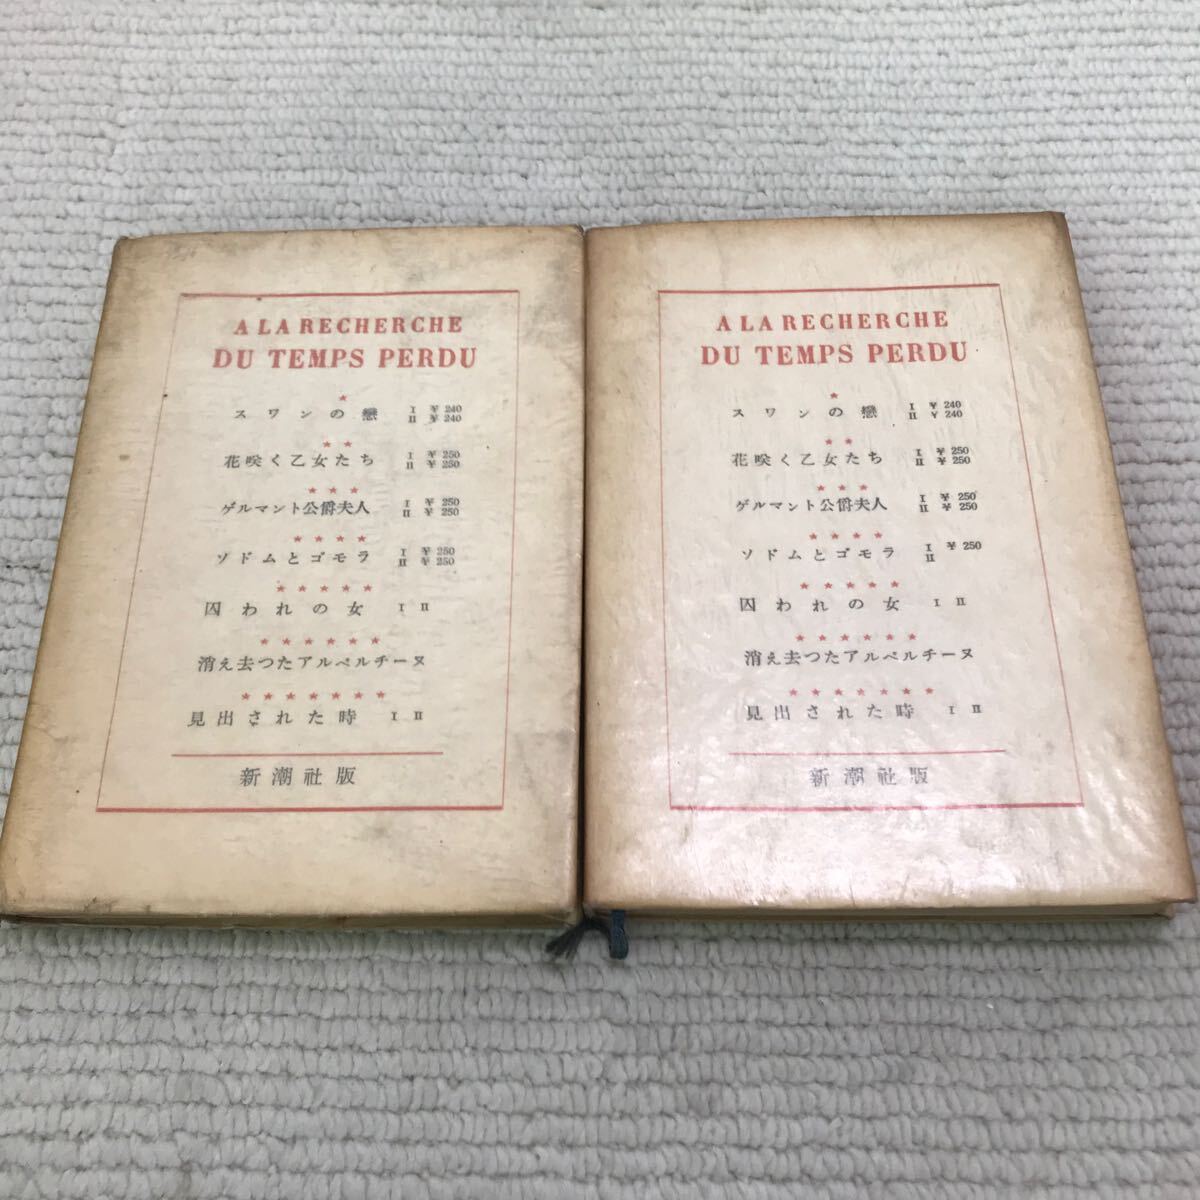 A LA RECHERCHE
DU TEMPS PERDU
★
スワンの戀 I ¥ 240
II ¥ 240
★★
花咲く乙女たち I ¥ 250
II ¥ 250
★★★
ゲルマント公爵夫人 I ¥ 250
II ¥ 250
★★★★
ソドムとゴモラ I ¥ 250
II ¥ 250
★★★★★
囚われの女 I II
★★★★★★
消え去つたアルベルチーヌ
★★★★★★★
見出された時 I II
新潮社版
A LA RECHERCHE
DU TEMPS PERDU
★
スワンの戀 I ¥ 240
II ¥ 240
★★
花咲く乙女たち I ¥ 250
II ¥ 250
★★★
ゲルマント公爵夫人 I ¥ 250
II ¥ 250
★★★★
ソドムとゴモラ I ¥ 250
II
★★★★★
囚われの女 I II
★★★★★★
消え去つたアルベルチーヌ
★★★★★★★
見出された時 I II
新潮社版